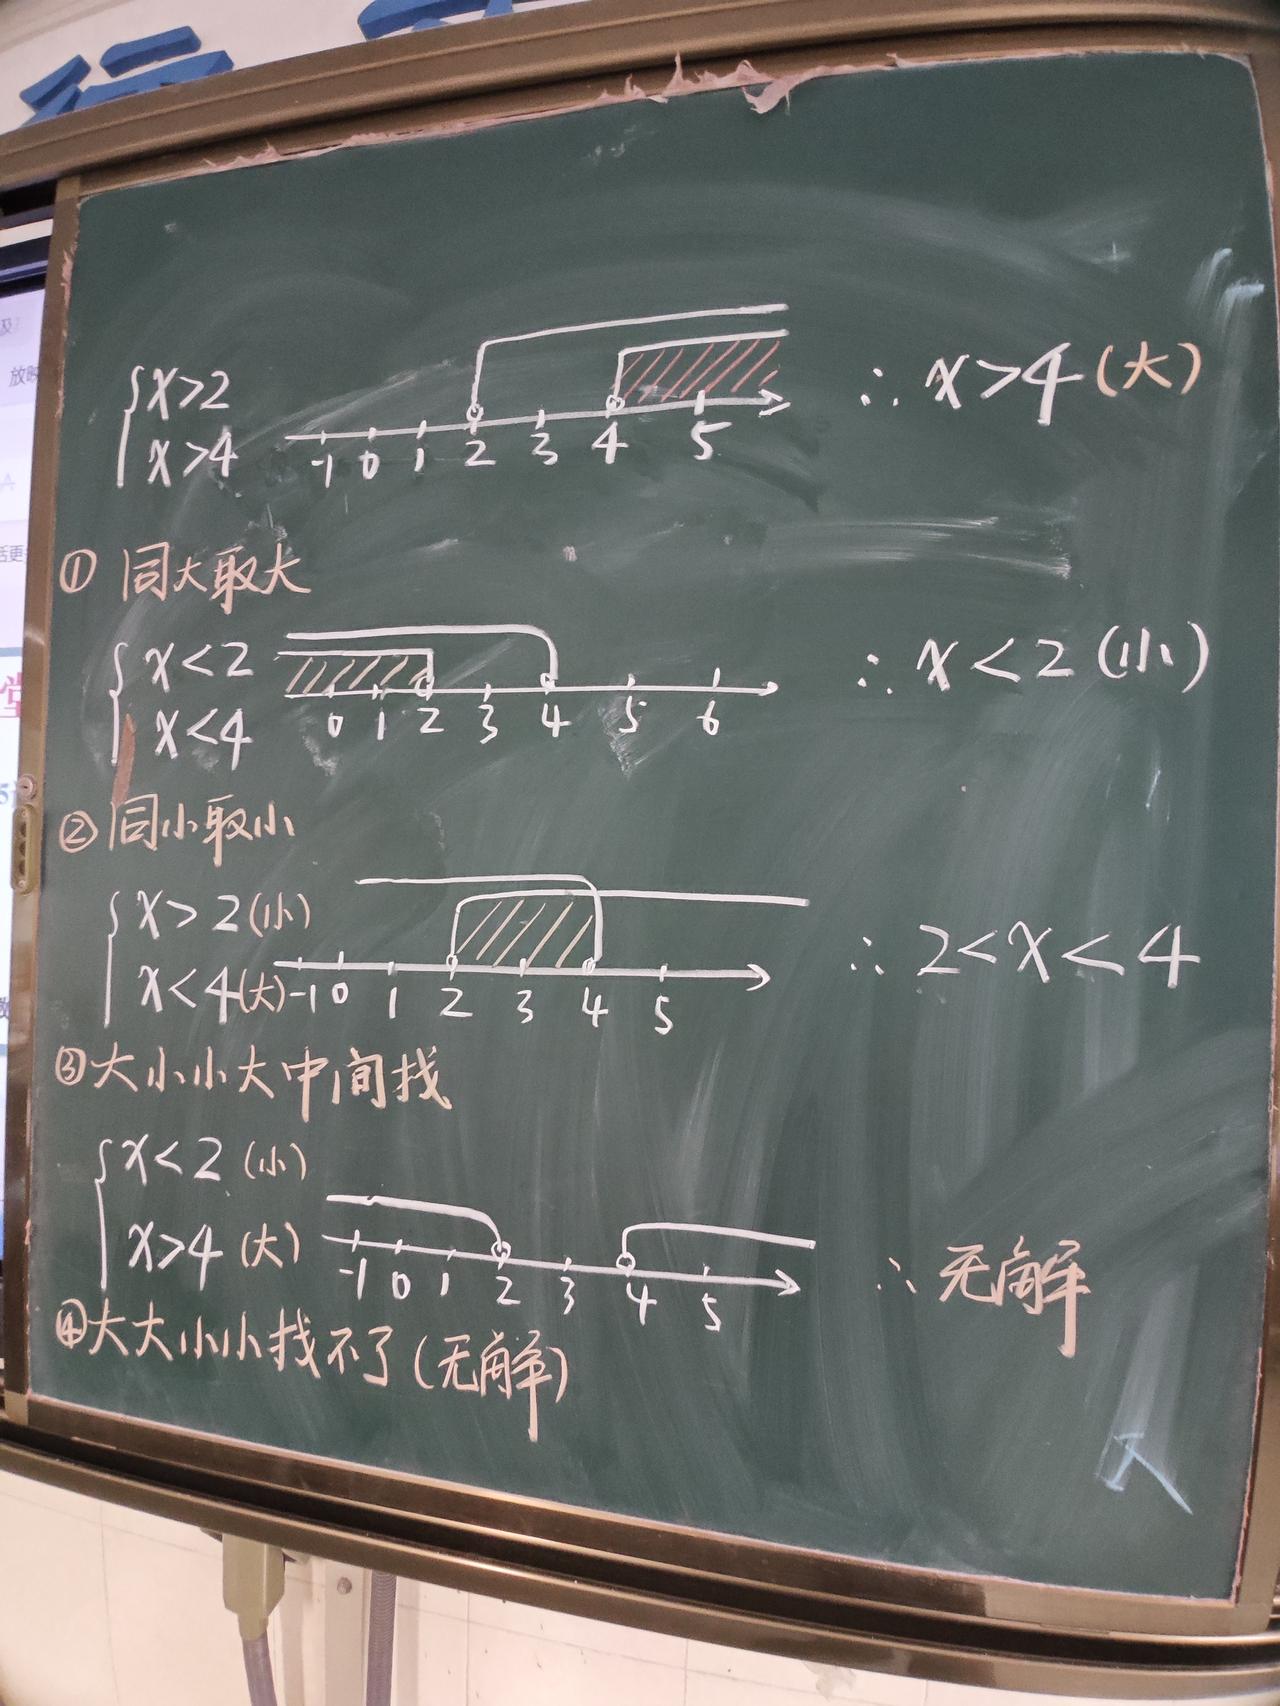 {x>2
x>4
-1 0 1 2 3 4 5
∴ x>4(大)
① 同大取大
{x<2
x<4
0 1 2 3 4 5 6
∴ x<2(小)
② 同小取小
{x>2(小)
x<4(大)
-1 0 1 2 3 4 5
∴ 2<x<4
③ 大小小大中间找
{x<2(小)
x>4(大)
-1 0 1 2 3 4 5
∴ 无解
④ 大大小小找不了(无解)
放映